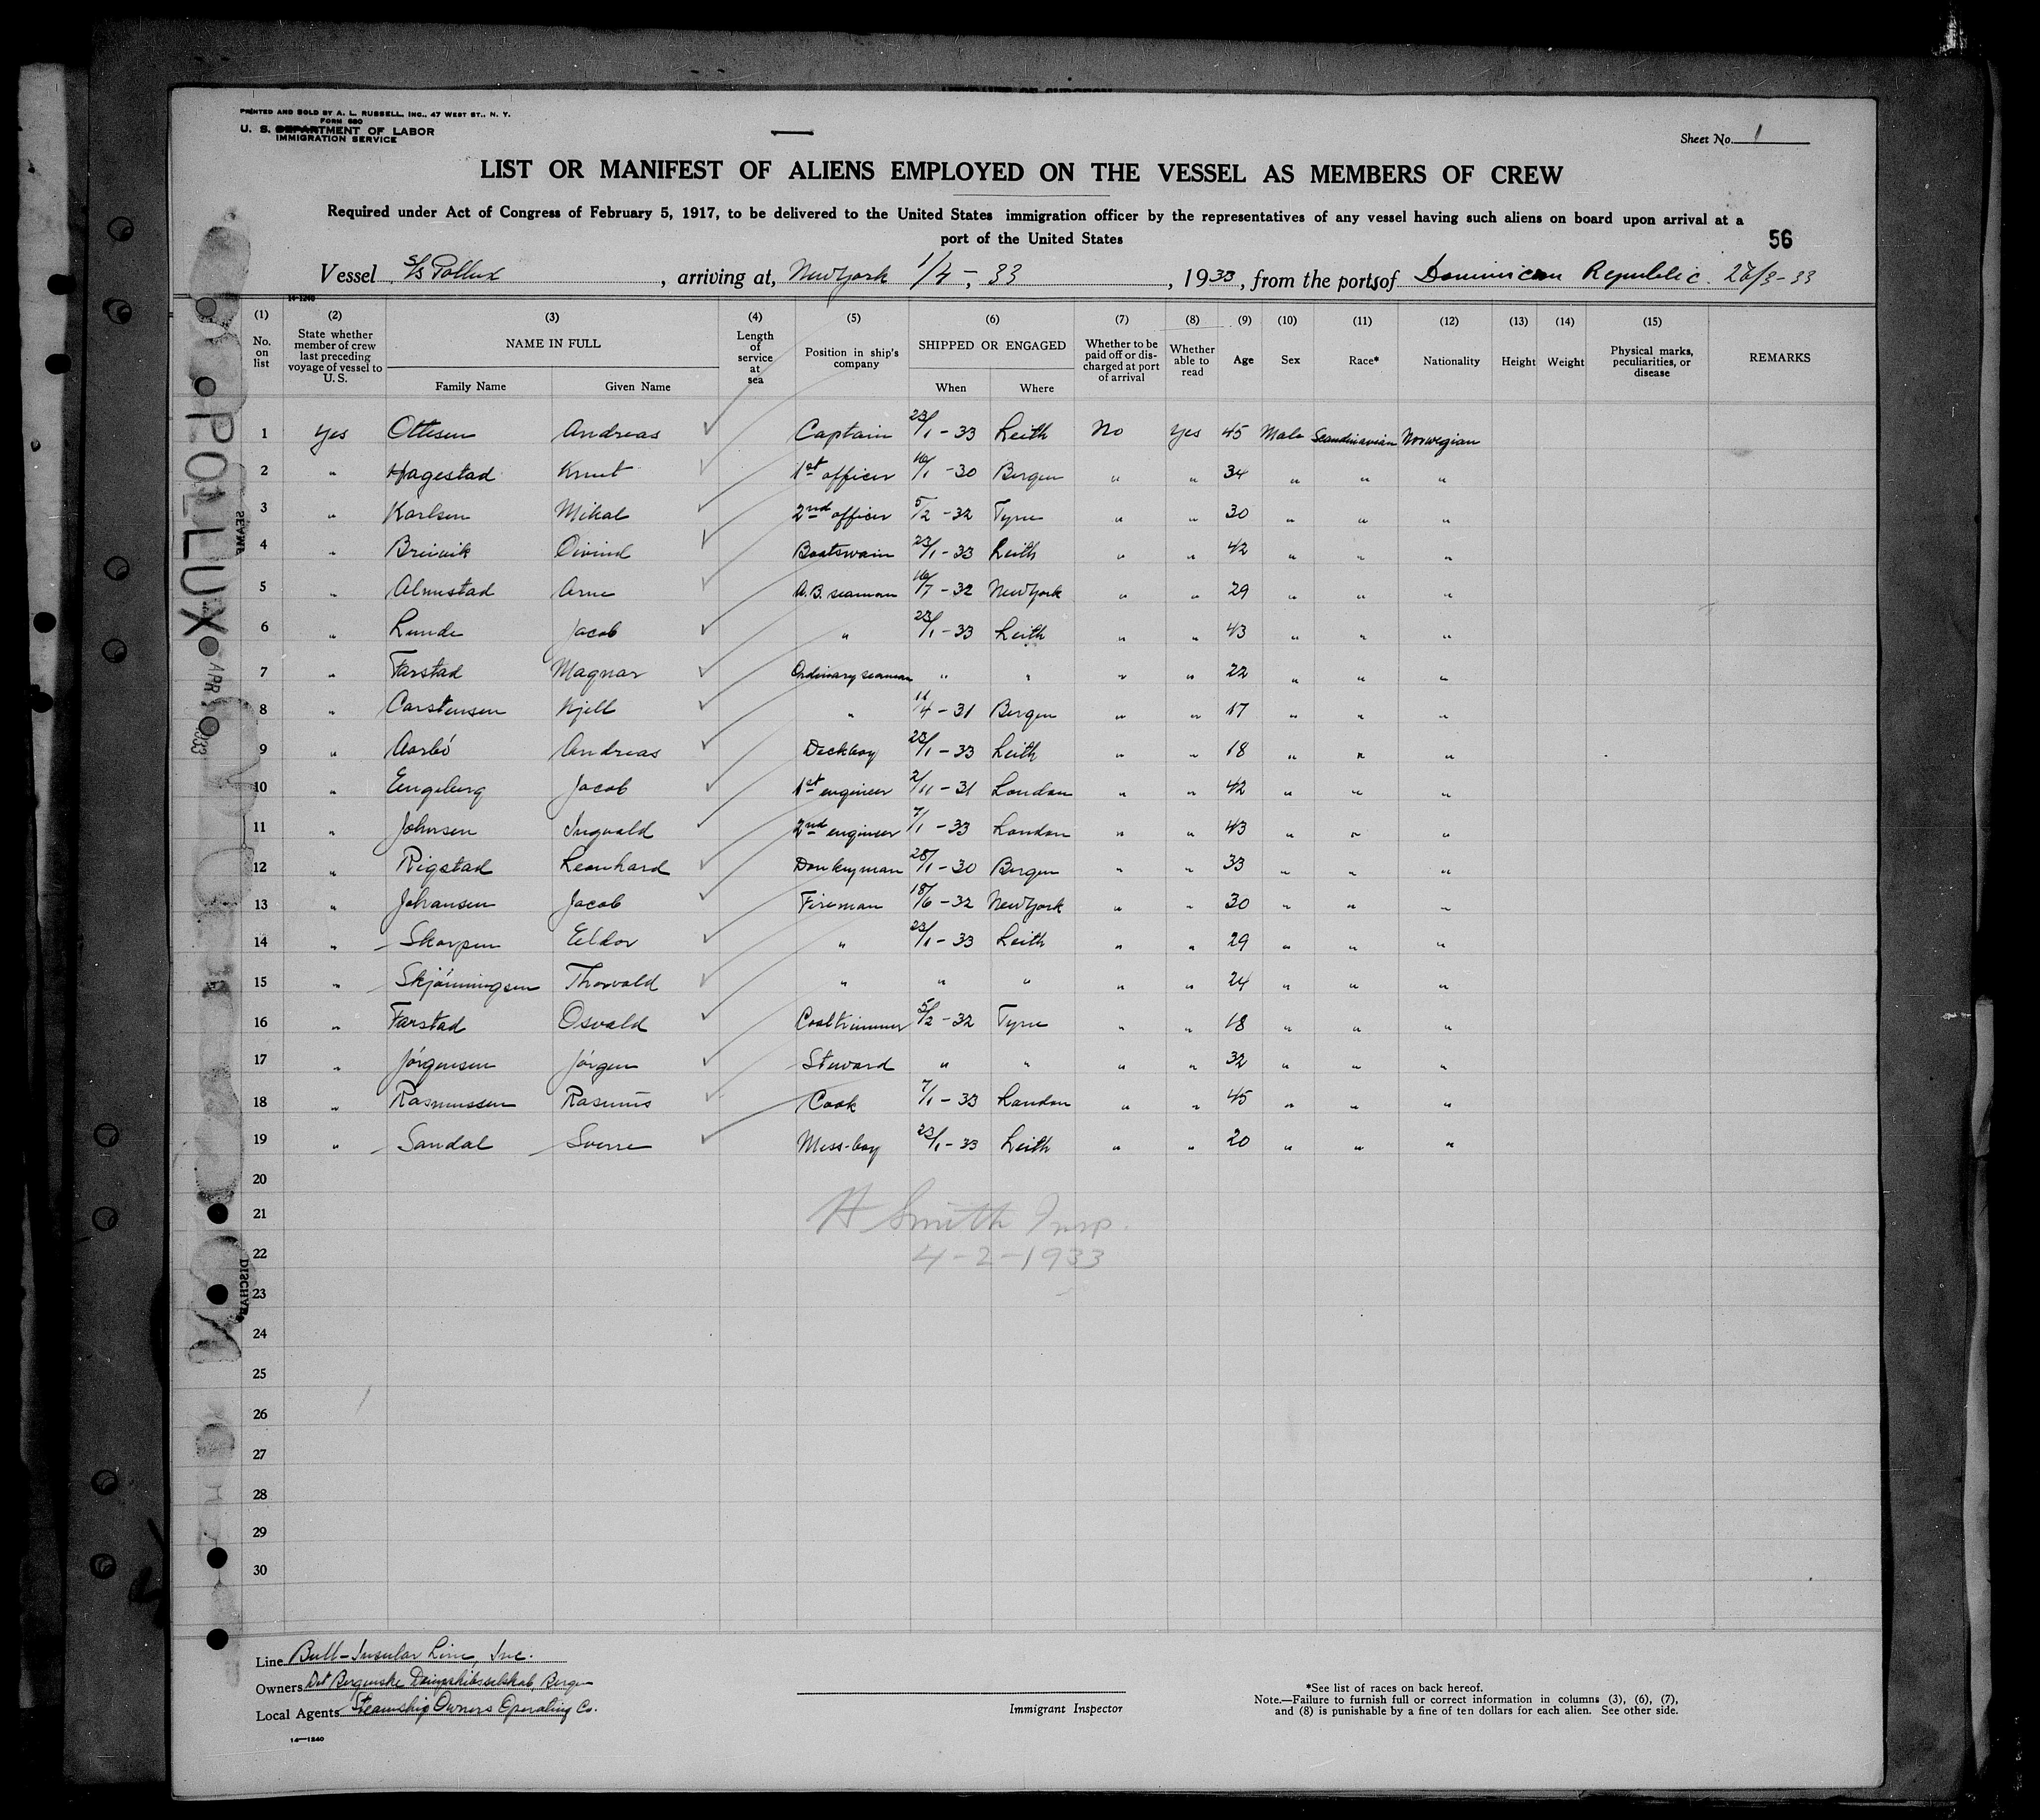 PRINTED AND SOLD BY A. L. RUSSELL, INC., 47 WEST ST., N. Y.
FORM 680
U. S. DEPARTMENT OF LABOR
IMMIGRATION SERVICE
Sheet No. 1
LIST OR MANIFEST OF ALIENS EMPLOYED ON THE VESSEL AS MEMBERS OF CREW
Required under Act of Congress of February 5, 1917, to be delivered to the United States immigration officer by the representatives of any vessel having such aliens on board upon arrival at a
port of the United States
56
Vessel S/S Pollux, arriving at, New York 1/4 - 33, 1933, from the ports of Dominican Republic. 26/3-33
14-1240
(1) No. on list
(2) State whether member of crew last preceding voyage of vessel to U. S.
(3) NAME IN FULL Family Name Given Name
(4) Length of service at sea
(5) Position in ship's company
(6) SHIPPED OR ENGAGED When Where
(7) Whether to be paid off or discharged at port of arrival
(8) Whether able to read
(9) Age
(10) Sex
(11) Race*
(12) Nationality
(13) Height
(14) Weight
(15) Physical marks, peculiarities, or disease
REMARKS
1 Yes Ottesen Andreas ✓ Captain 23/1 - 33 Leith No Yes 45 Male Scandinavian Norwegian
2 " Hagestad Knut ✓ 1st officer 16/1 - 30 Bergen " " 34 " " "
3 " Karlsen Mikal ✓ 2nd officer 5/2 - 32 Tyne " " 30 " " "
4 " Breivik Oivind ✓ Boatswain 23/1 - 33 Leith " " 42 " " "
5 " Almestad Arne ✓ A.B. seaman 16/7 - 32 New York " " 29 " " "
6 " Lunde Jacob ✓ " 23/1 - 33 Leith " " 43 " " "
7 " Farstad Magnar ✓ Ordinary seaman " " " " 22 " " "
8 " Carstensen Kjell ✓ " 11/4 - 31 Bergen " " 17 " " "
9 " Aarbö Andreas ✓ Deckboy 23/1 - 33 Leith " " 18 " " "
10 " Engeberg Jacob ✓ 1st engineer 2/11 - 31 London " " 42 " " "
11 " Johnsen Ingvald ✓ 2nd engineer 7/1 - 33 London " " 43 " " "
12 " Rigstad Leonhard ✓ Donkeyman 28/1 - 30 Bergen " " 33 " " "
13 " Johansen Jacob ✓ Fireman 18/6 - 32 New York " " 30 " " "
14 " Skorpen Eldor ✓ " 23/1 - 33 Leith " " 29 " " "
15 " Skjönningsen Thorvald ✓ " " " " " 24 " " "
16 " Farstad Osvald ✓ Coaltrimmer 5/2 - 32 Tyne " " 18 " " "
17 " Jörgensen Jörgen ✓ Steward " " " " 32 " " "
18 " Rasmussen Rasmus ✓ Cook 7/1 - 33 London " " 45 " " "
19 " Sandal Sverre ✓ Mess-boy 23/1 - 33 Leith " " 20 " " "
20
21
22
23
24
25
26
27
28
29
30
H Smith Insp.
4-2-1933
POLLUX
APR
1933
Line Bull-Insular Line, Inc.
Owners Det Bergenske Dampskibsselskab, Bergen
Local Agents Steamship Owners Operating Co.
14—1240
Immigrant Inspector
*See list of races on back hereof.
Note.—Failure to furnish full or correct information in columns (3), (6), (7),
and (8) is punishable by a fine of ten dollars for each alien. See other side.